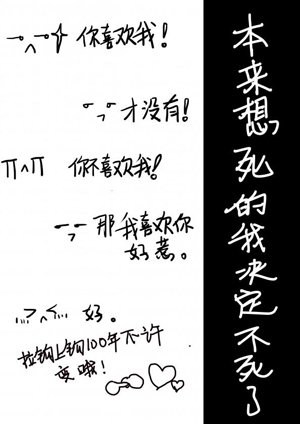 你喜欢我！
才没有！
∏∧∏ 你不喜欢我！
那我喜欢你
好惹。
好。
拉钩上钩100年不许
变哦！
本来想死的我决定不死了